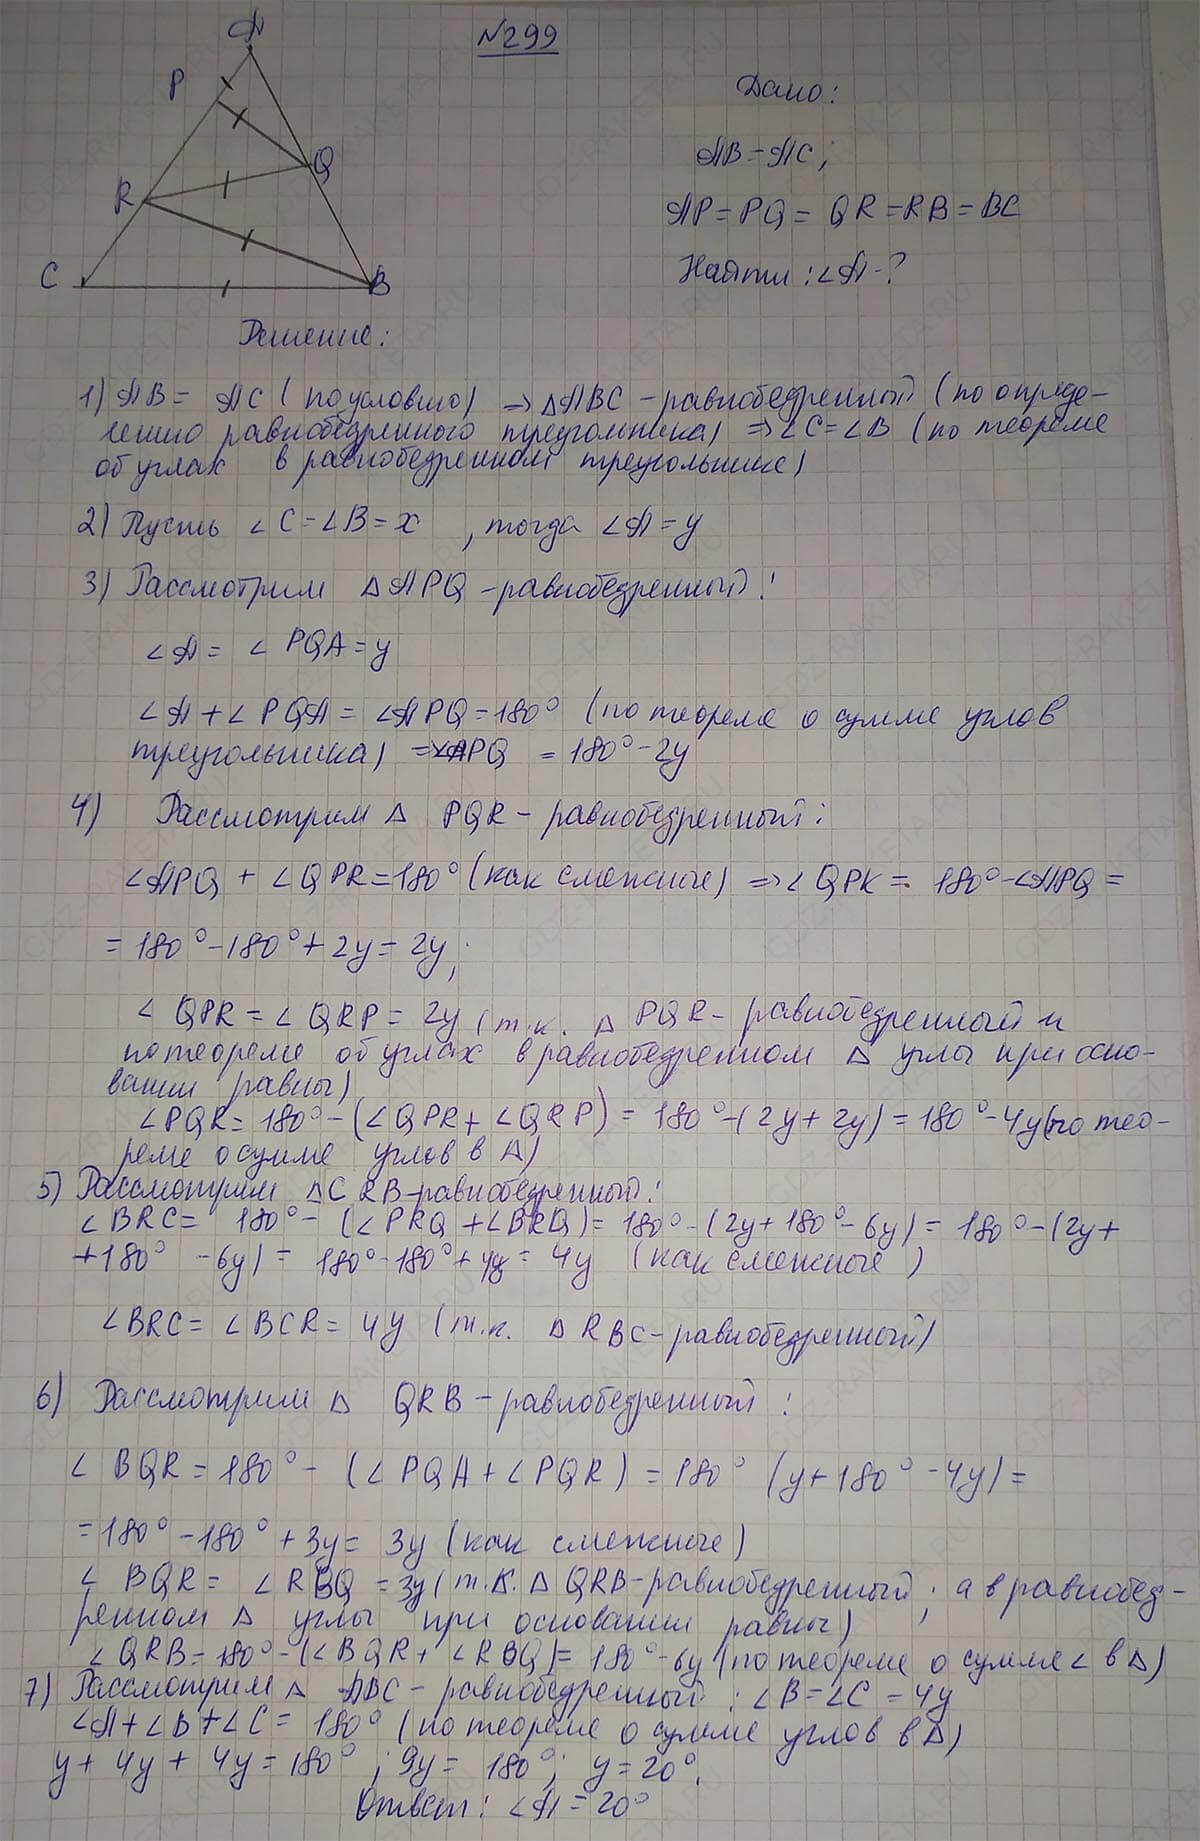 A
№299
P
Дано:
Q
AB=AC;
R
AP=PQ=QR=RB=BC
C
B
Найти: ∠A-?
Решение:
1) AB = AC (по условию) => △ABC - равнобедренный (по опреде-
лению равнобедренного треугольника) => ∠C=∠B (по теореме
об углах в равнобедренном треугольнике)
2) Пусть ∠C=∠B=x , тогда ∠A=y
3) Рассмотрим △APQ - равнобедренный:
∠A= ∠PQA=y
∠A+∠PQA = ∠APQ=180° (по теореме о сумме углов
треугольника) =>∠APQ = 180°-2y
4) Рассмотрим △ PQR - равнобедренный:
∠APQ + ∠QPR=180° (как смежные) => ∠QPK = 180°-∠APQ =
=180°-180°+2y=2y;
∠QPR=∠QRP=2y (т.к. △ PQR - равнобедренный и
по теореме об углах в равнобедренном △ углы при осно-
вании равны)
∠PQR=180°-(∠QPR+∠QRP)=180°-(2y+2y)=180°-4y(по тео-
реме о сумме углов в △)
5) Рассмотрим △CRB-равнобедренный:
∠BRC= 180°-(∠PRQ+∠BRQ)=180°-(2y+180°-6y)=180°-(2y+
+180°-6y)=180°-180°+4y=4y (как смежные)
∠BRC=∠BCR=4y (т.к. △RBC-равнобедренный)
6) Рассмотрим △ QRB - равнобедренный:
∠BQR=180°-(∠PQA+∠PQR)=180° (y+180°-4y)=
=180°-180°+3y=3y (как смежные)
∠BQR=∠RBQ=3y(т.к. △QRB-равнобедренный; а в равнобед-
ренном △ углы при основании равны)
∠QRB=180°-(∠BQR+∠RBQ)=180°-6y(по теореме о сумме ∠ в △)
7) Рассмотрим △ ABC - равнобедренный: ∠B=∠C=4y
∠A+∠B+∠C=180° (по теореме о сумме углов в △)
y+4y+4y=180°; 9y=180°; y=20°.
Ответ: ∠A=20°